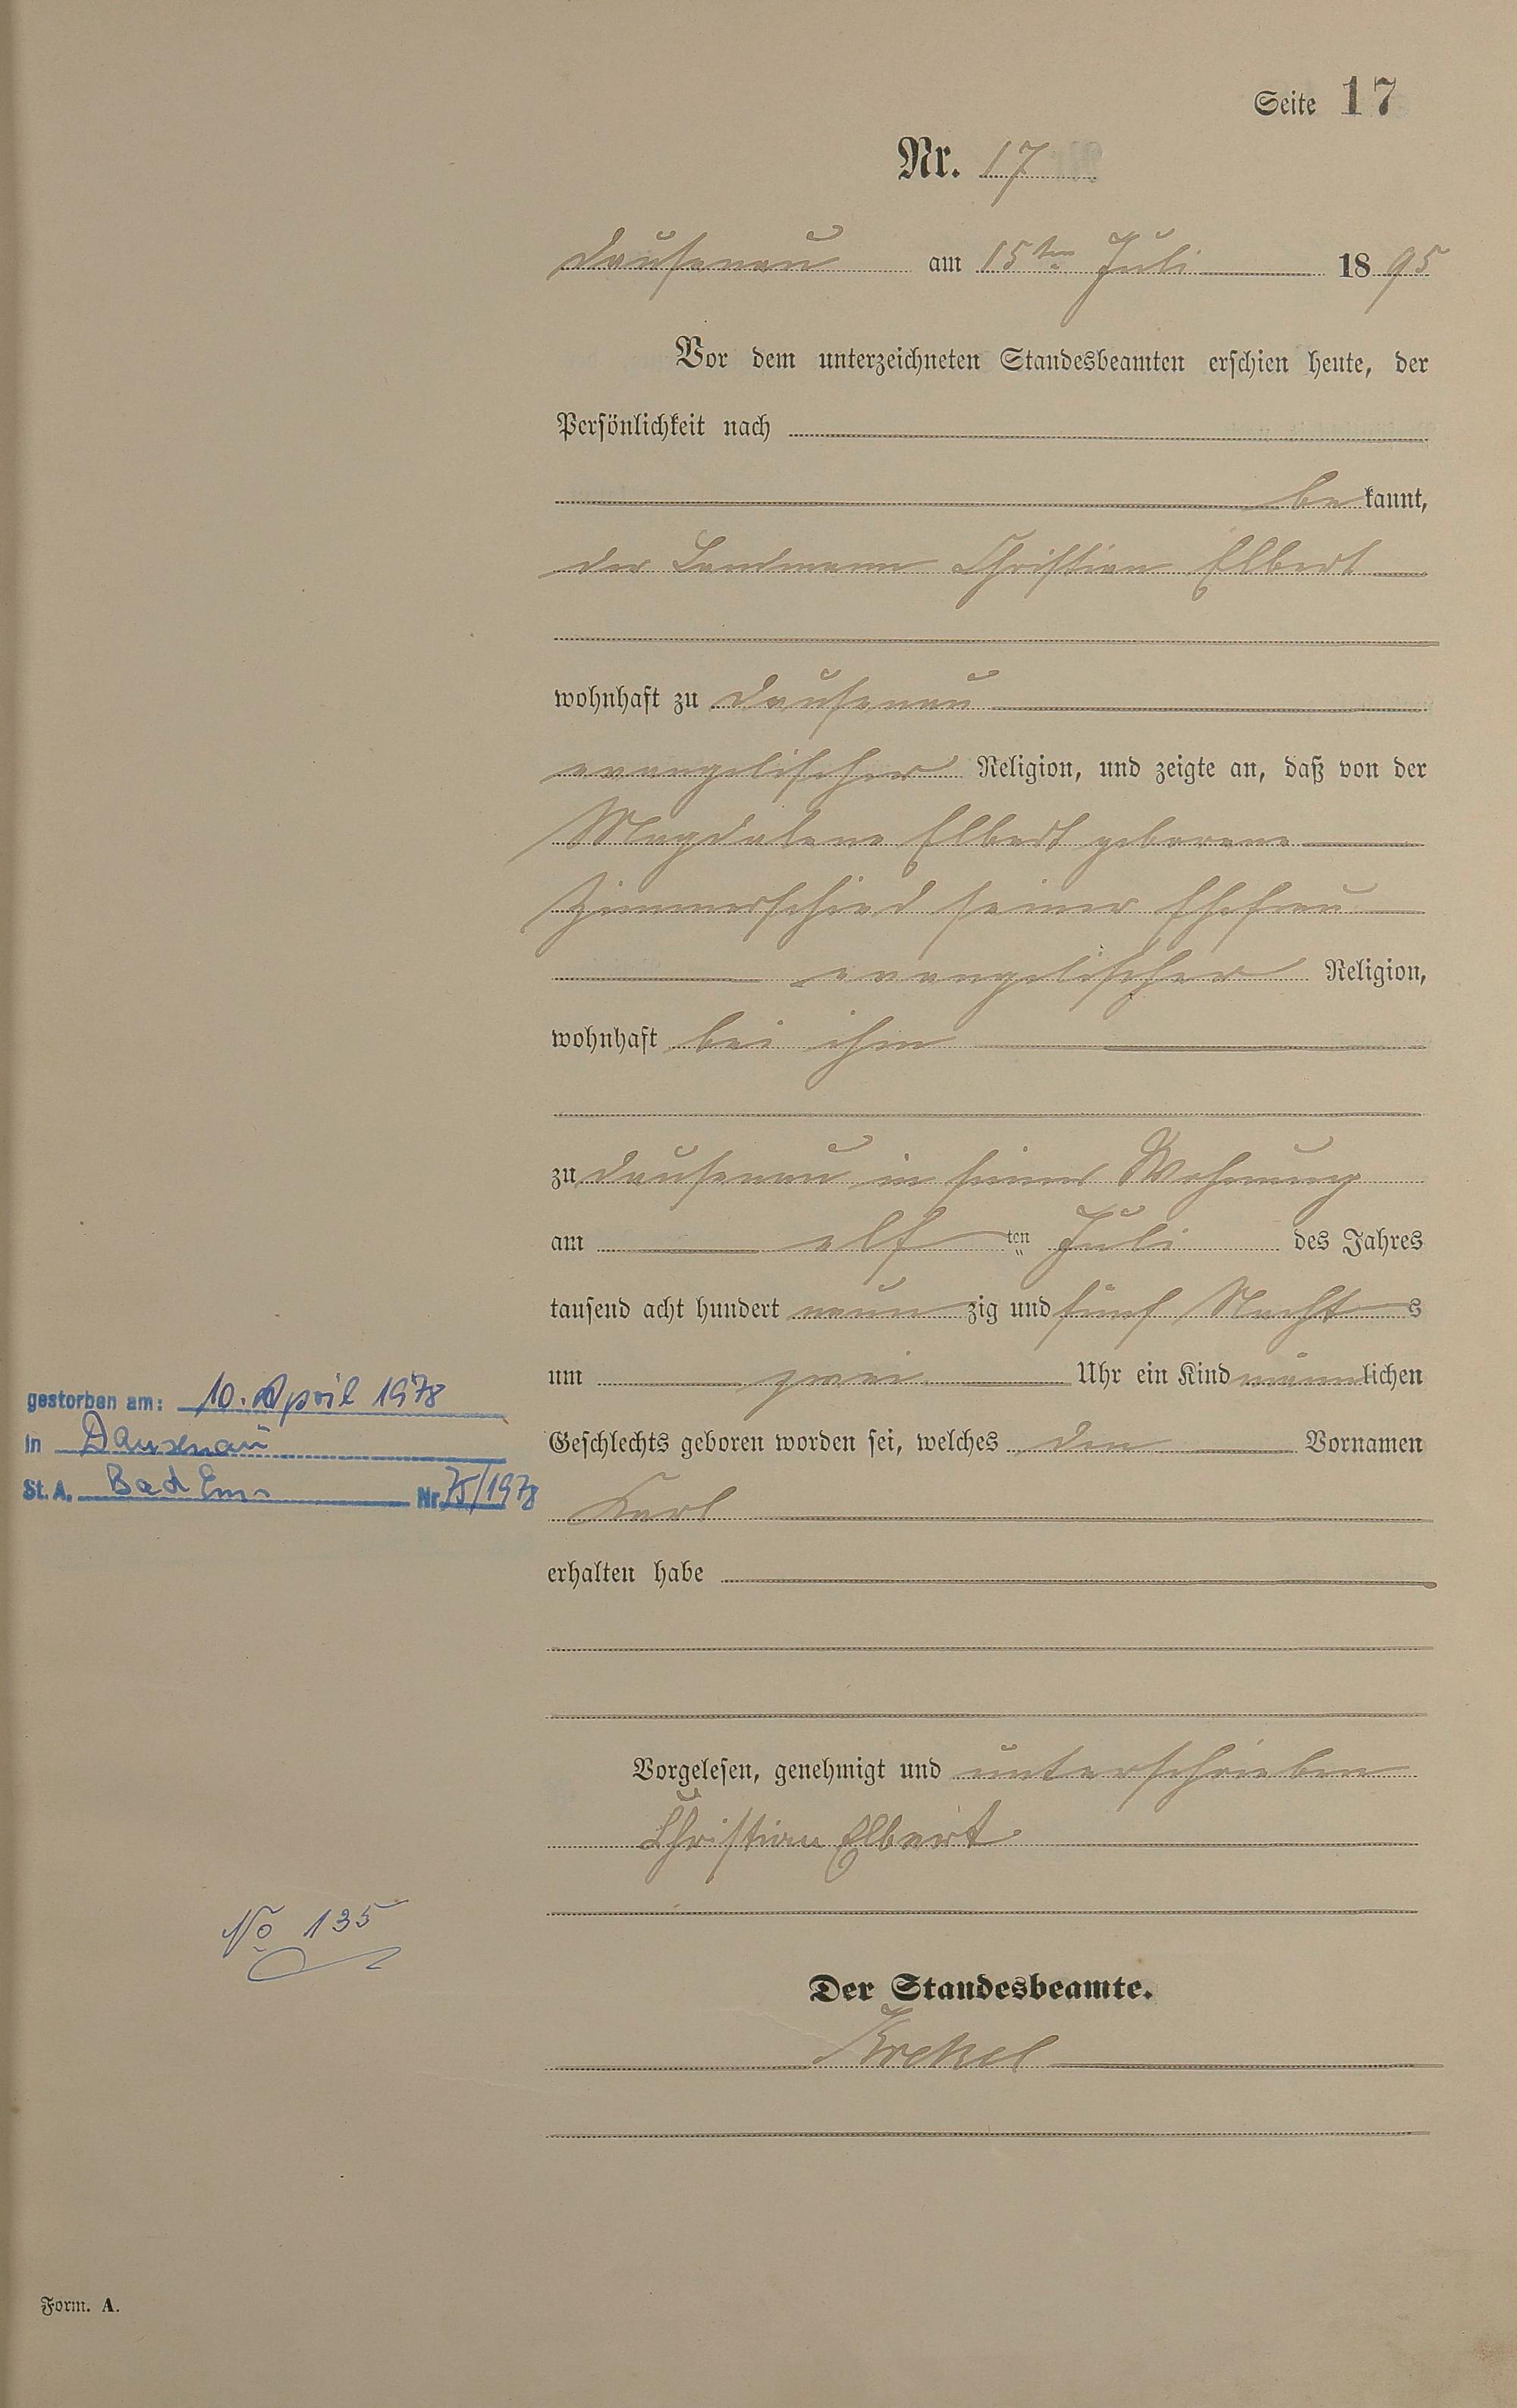 Seite 17
Nr. 17
Dausenau am 15ten Juli 1895
Vor dem unterzeichneten Standesbeamten erschien heute, der
Persönlichkeit nach
bekannt,
der Landmann Christian Elbert
wohnhaft zu Dausenau
evangelischer Religion, und zeigte an, daß von der
Magdalene Elbert geborene
Zimmerschied seiner Ehefrau
evangelischer Religion,
wohnhaft bei ihm
zu Dausenau in seiner Wohnung
am elf ten Juli des Jahres
tausend acht hundert neunzig und fünf Nachts
um zwei Uhr ein Kind männlichen
Geschlechts geboren worden sei, welches den Vornamen
Karl
erhalten habe
Vorgelesen, genehmigt und unterschrieben
Christian Elbert
Der Standesbeamte.
Krekel
gestorben am: 10. April 1978
in Dausenau
St. A. Bad Ems Nr. 75/1978
No 135
Form. A.